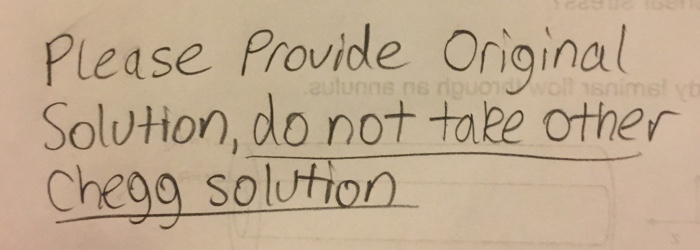 Please Provide Original
Solution, do not take other
Chegg solution